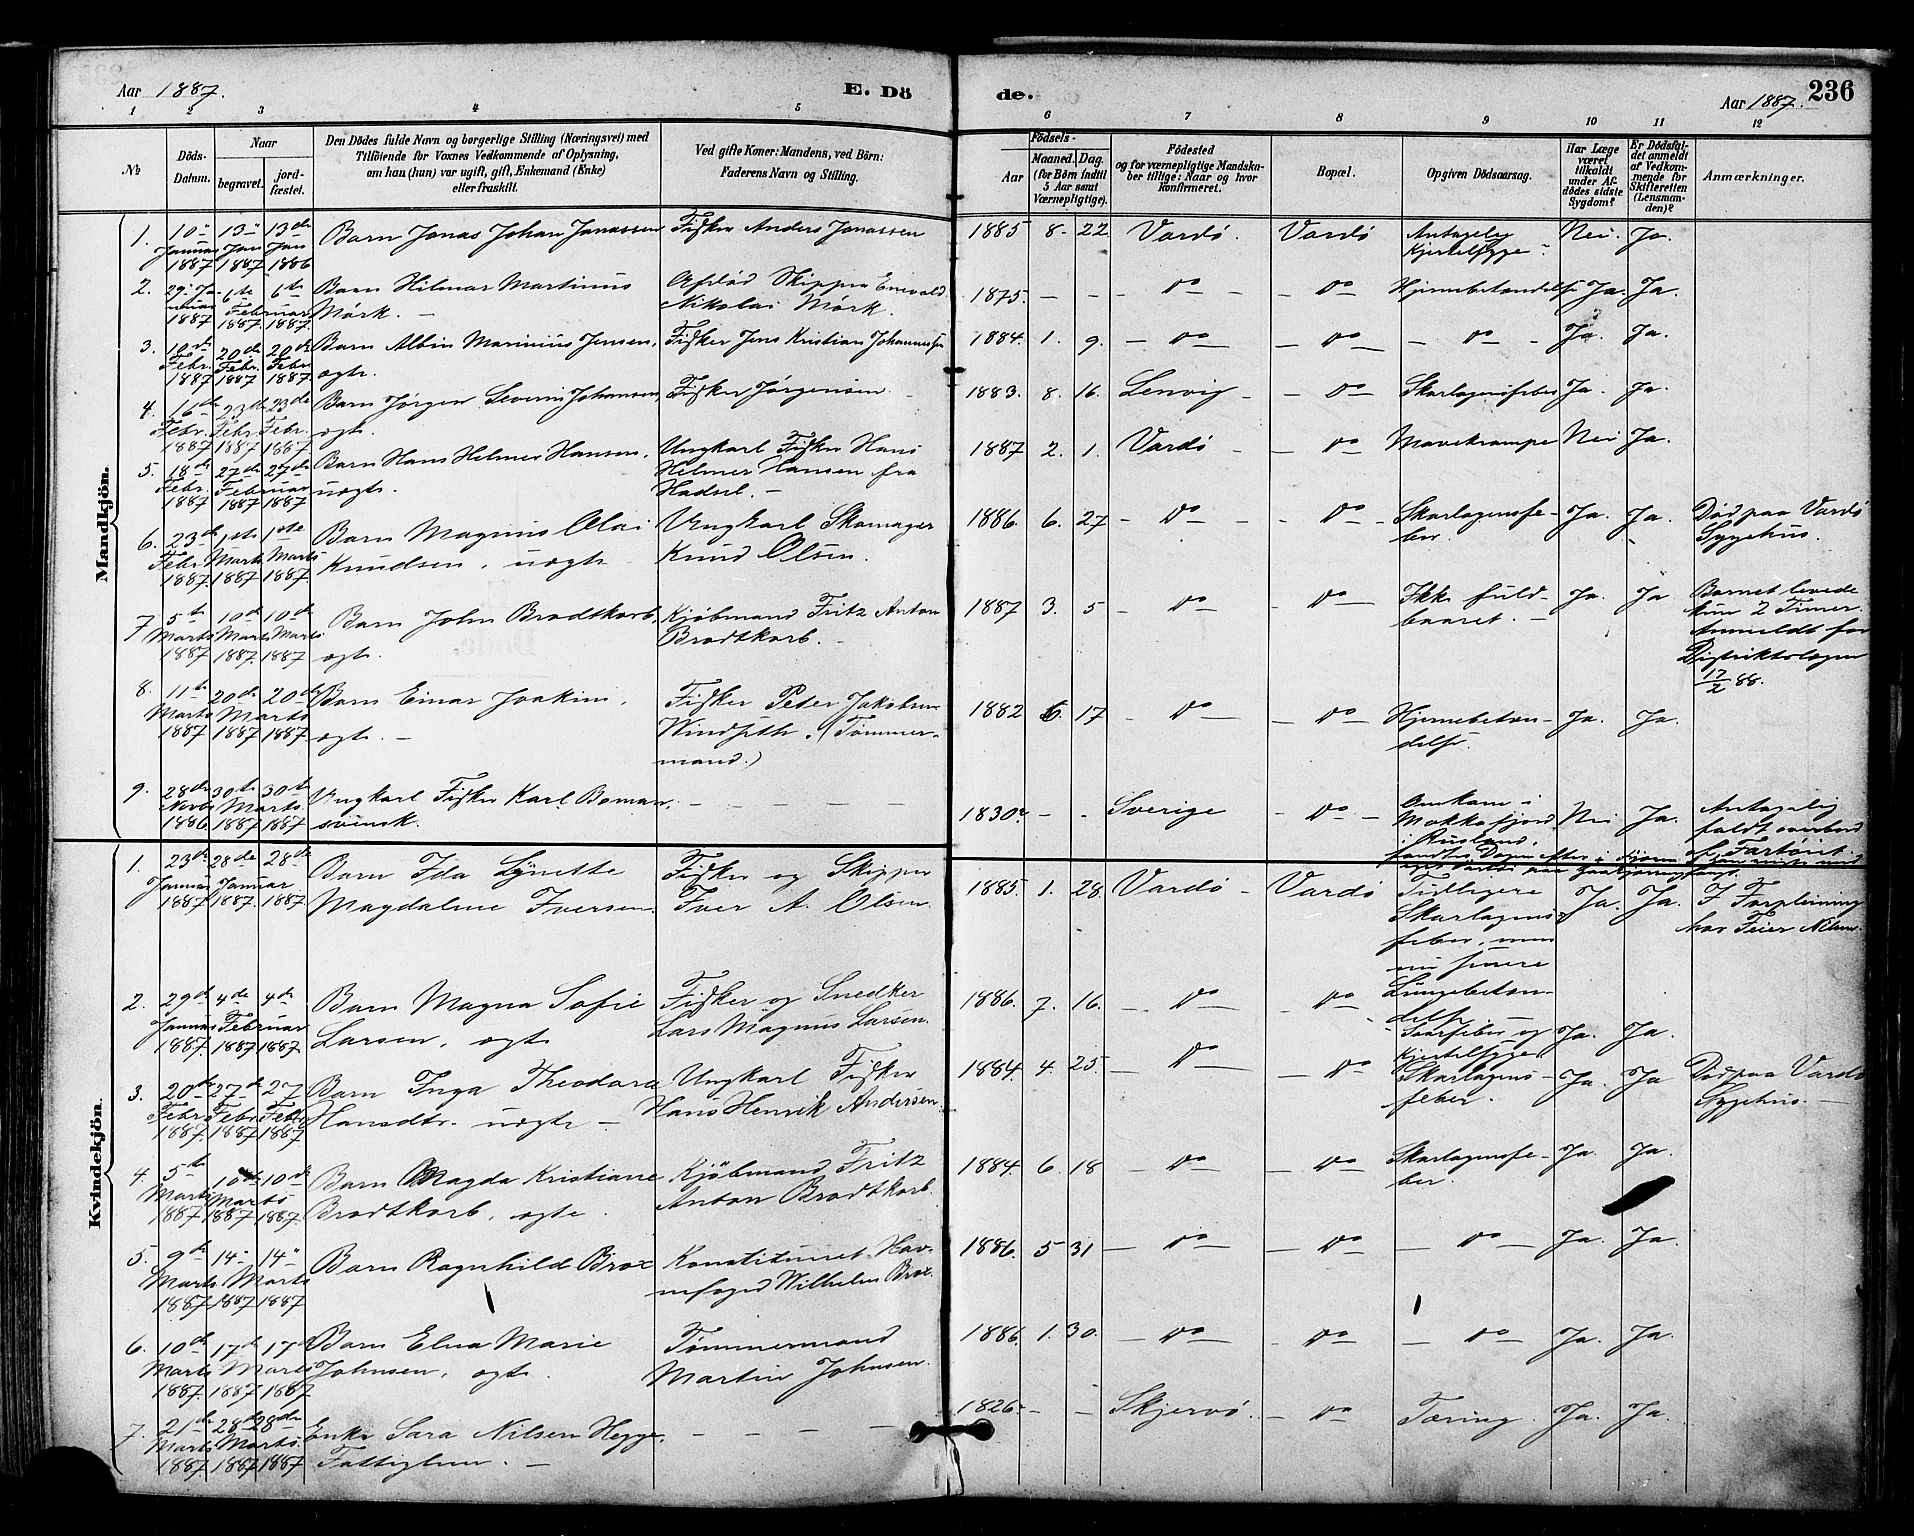 Aar 1887.
E. Dö
de.
Aar 1887.
236
1 2 3 4 5 6 7 8 9 10 11 12
№
Döds-
Datum.
Naar
begravet.
jord-
fæstet.
Den Dödes fulde Navn og borgerlige Stilling (Næringsvei) med
Tilföiende for Voxnes Vedkommende af Oplysning,
om han (hun) var ugift, gift, Enkemand (Enke)
eller fraskilt.
Ved gifte Koner: Mandens, ved Börn:
Faderens Navn og Stilling.
Födsels-
Aar
Maaned.
Dag.
(for Börn indtil
5 Aar samt
Værnepligtige).
Födested
og for værnepligtige Mandska-
ber tillige: Naar og hvor
konfirmeret.
Bopæl.
Opgiven Dödsaarsag.
Har Læge
været
tilkaldt
under Af-
dödes sidste
Sygdom?
Er Dödsfal-
det anmeldt
af Vedkom-
mende for
Skifteretten
(Lensman-
den)?
Anmærkninger.
Mandkjön.
1. 10" Januar 1887 13" Jan 1887 13de Jan 1886 Barn Jonas Johan Jonassen Fisker Anders Jonassen 1885 8. 22. Vardö. Vardö Antagelig Kjertelsyge Nei. Ja.
2. 29" Januar 1887 6te Februar 1887 6te Februar 1887. Barn Hilmar Martinus Mörk. — Afdöd Skipper Enevold Nikolai Mörk. 1875. — — do — do — Hjernebetændelse Ja. Ja.
3. 10de Febr. 1887 20de Febr. 1887 20de Febr. 1887. Barn Albin Marinius Jensen, ægte. Fisker Jens Kristian Johannessen 1884. 1. 9. — do — do — do — Ja. Ja.
4. 16de Febr. 1887 23de Febr. 1887 23de Febr. 1887 Barn Jørgen Severin Johansen, ægte. Fisker Jørgensen 1883. 8. 16. Lenvig — do — Skarlagensfeber Ja. Ja.
5. 18de Febr. 1887 27de Februar 1887 27de Februar 1887 Barn Hans Helmer Hansen, uægte. Ungkarl Fisker Hans Helmer Hansen fra Hadsel. — 1887 2. 1. Vardö — do Mavekrampe Nei Ja.
6. 23de Febr. 1887. 1ste Marts 1887. 1ste Marts 1887. Barn Magnus Olai Knudsen, uægte Ungkarl Skomager Knud Olsen. 1886. 6. 27 — do — do — Skarlagensfe- ber. Ja. Ja. Död paa Vardö Sygehus.
7 5te Marts 1887 10de Marts 1887. 10de Marts 1887 Barn John Brodtkorb, ægte. Kjöbmand Fritz Anton Brodtkorb. — 1887 3. 5 — do — do — Ikke fuld- baaret. — Ja. Ja Barnet levede kun 2 Timer. Anmeldt for Distriktslægen 17/2 88.
8. 11te Marts 1887 20de Marts 1887 20de Marts 1887 Barn Einar Joakim, ægte. — Fisker Peter Jakobsen Windseth. (Tømmer- mand.) 1882 6. 17 — do — do — Hjernebetæn- delse. Ja. Ja.
9. 28de Novbr 1886 30te Marts 1887 30te Marts. 1887 Ungkarl Fisker Karl Boman, svensk. — — — — 1830. — - Sverige - do — Omkom i Mokkafjord i Rusland, Nei Ja. Antagelig faldt overbord af Fartöiet.
Kvindekjön.
1. 23de Januar 1887 28de Januar 1887. 28de 1887. Barn Ida Lynette Magdalene Iversen. Fisker og Skipper Iver A. Olsen 1885. 1. 28. Vardö — Vardö Tidligere Skarlagens- feber, men nu senere Lungebetæn- delse Ja. Ja. I Forpleining hos Feier Nilsen.
2. 29de Januar 1887. 4de Februar 1887 4de 1887 Barn Magna Sofie Larsen, ægte Fisker og Snedker Lars Magnus Larsen. 1886. 7. 16. — do — do — Saarfeber og Kjertelsyge Ja. Ja.
3. 20de Febr 1887. 27de Febr 1887 27 Febr 1887 Barn Inga Theodora Hansdtr. uægte — Ungkarl Fisker Hans Henrik Andersen. 1884. 4. 25. — do — do Skarlagens- feber. Ja. Ja Död paa Vardö Sygehus. —
4. 5te Marts 1887 10de Marts 1887 10de 1887. Barn Magda Kristiane Brodtkorb, ægte. Kjöbmand Fritz Anton Brodtkorb. 1884. 6. 18 — do — do — Skarlagensfe- ber. Ja. Ja.
5. 9de Marts 1887 14" Marts 1887 14" 1887 Barn Ragnhilde Brox Konstitueret Hav- nefoged Wilhelm Brox. 1886. 5 31 — do — do — do — Ja. Ja.
6. 10de Marts 1887. 17de Marts 1887 17de 1887 Barn Elna Marie Johnsen, ægte. Tømmermand Martin Johnsen. 1886. 1. 30. — do — do — do — Ja. Ja.
7. 21de Marts 1887 28de Marts. 1887 28de 1887 Enke Sara Nilsen Hegge, Fattiglem. — — — — — 1826. — — Skjervö. — do Tæring. Ja. Ja.